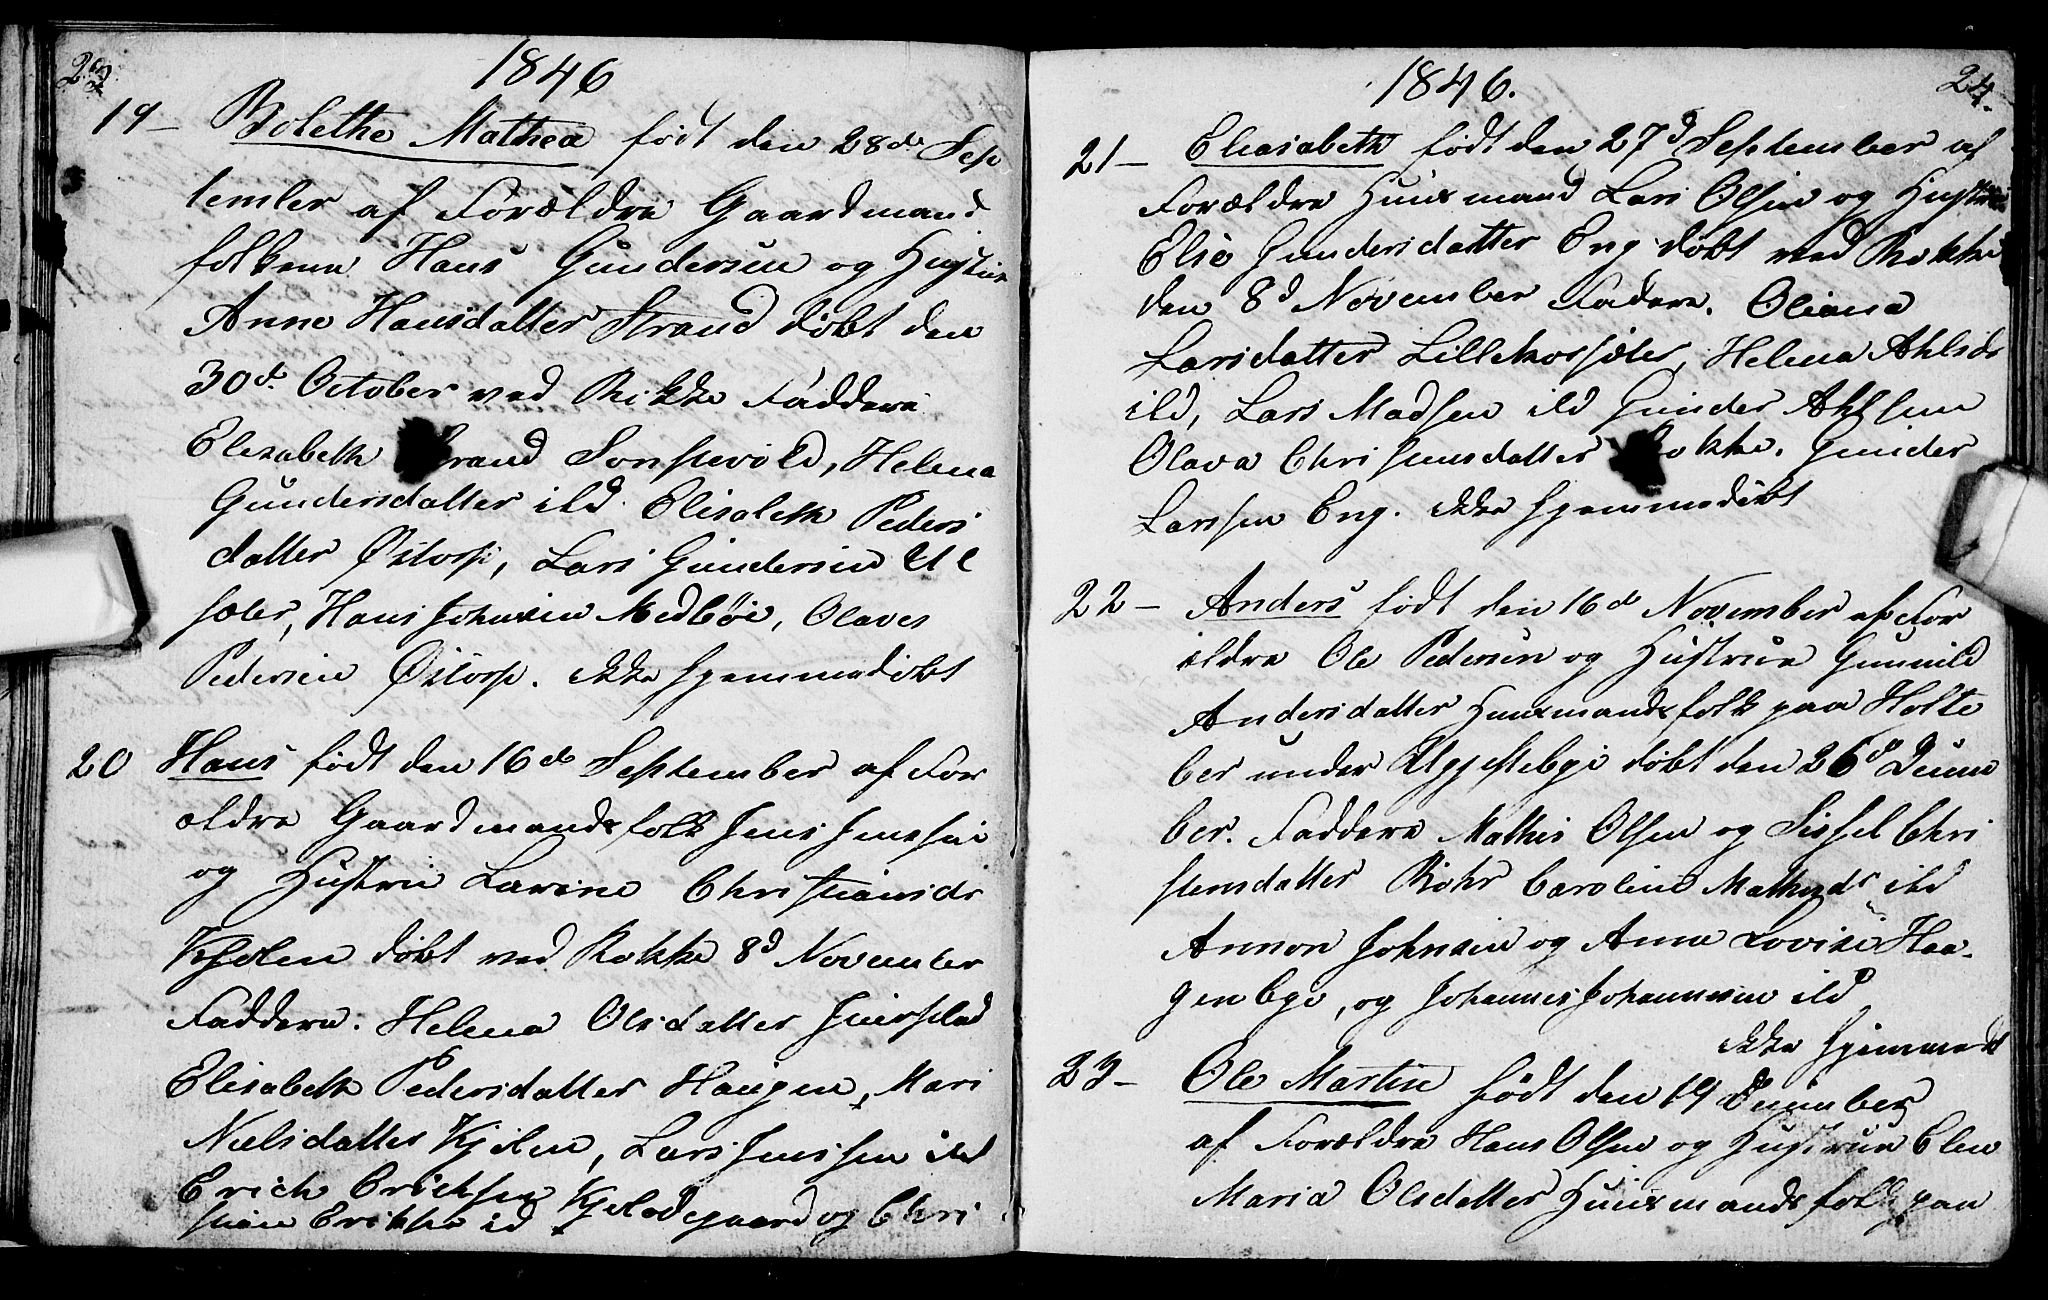 23.
1846
19 — Bolethe Mathea født den 28de Sep
tember af Forældre Gaardmand
folkene Hans Gundersen og Hustrue
Anne Hansdatter Strand døbt den
30d. October ved Rokke Faddere
Elisabeth Strand Sorstevold, Helena
Gundersdatter ibd. Elisabeth Peders
datter Østorp, Lars Gundersen
Hans Johnsen Medbøe, Olaves
Pedersen Østorp. ikke hjemmedøbt
20 Hans født den 16de September af For
ældre Gaardmandsfolk Jens Jenssen
og Hustrue Lovine Christiansdr
Kjølen døbt ved Rokke 8d November
Faddere. Helena Olsdatter
Elisabeth Pedersdatter Haugen, Mari
Nielsdatter Kjølen, Lars Jenssen ibd
Erich Erichsen Kjølødegaard og Chri
stian Erikke ibd
1846.
24.
21 — Elisabeth født den 27d September af
Forældre Huusmand Lars Olsen og Hustrue
Else Gundersdatter Eng døbt ved Rokke
den 8d November Faddere. Oliana
Larsdatter Helena Ahlsdr
ibd, Lars Madsen ibd Gunder Ahlsen
Olava Christensdatter Rokke. Gunder
Larssen Eng. ikke hjemmedøbt
22 — Anders født den 16de November af For
ældre Ole Pedersen og Hustrue Gunnild
Andersdatter Huusmandsfolk paa Holte
ber under døbt den 26d Decem
ber. Faddere Mathis Olsen og Sissel Chri
stensdatter Rohr Caroline Mathisdr ibd
Annon Johnsen og Anne Lovise Haa-
genbye, og Johannes Johannesen ibd
ikke hjemmedt
23 — Ole Martin født den 19 December
af Forældre Hans Olsen og Hustrue Elen
Maria Olsdatter Huusmandsfolk paa